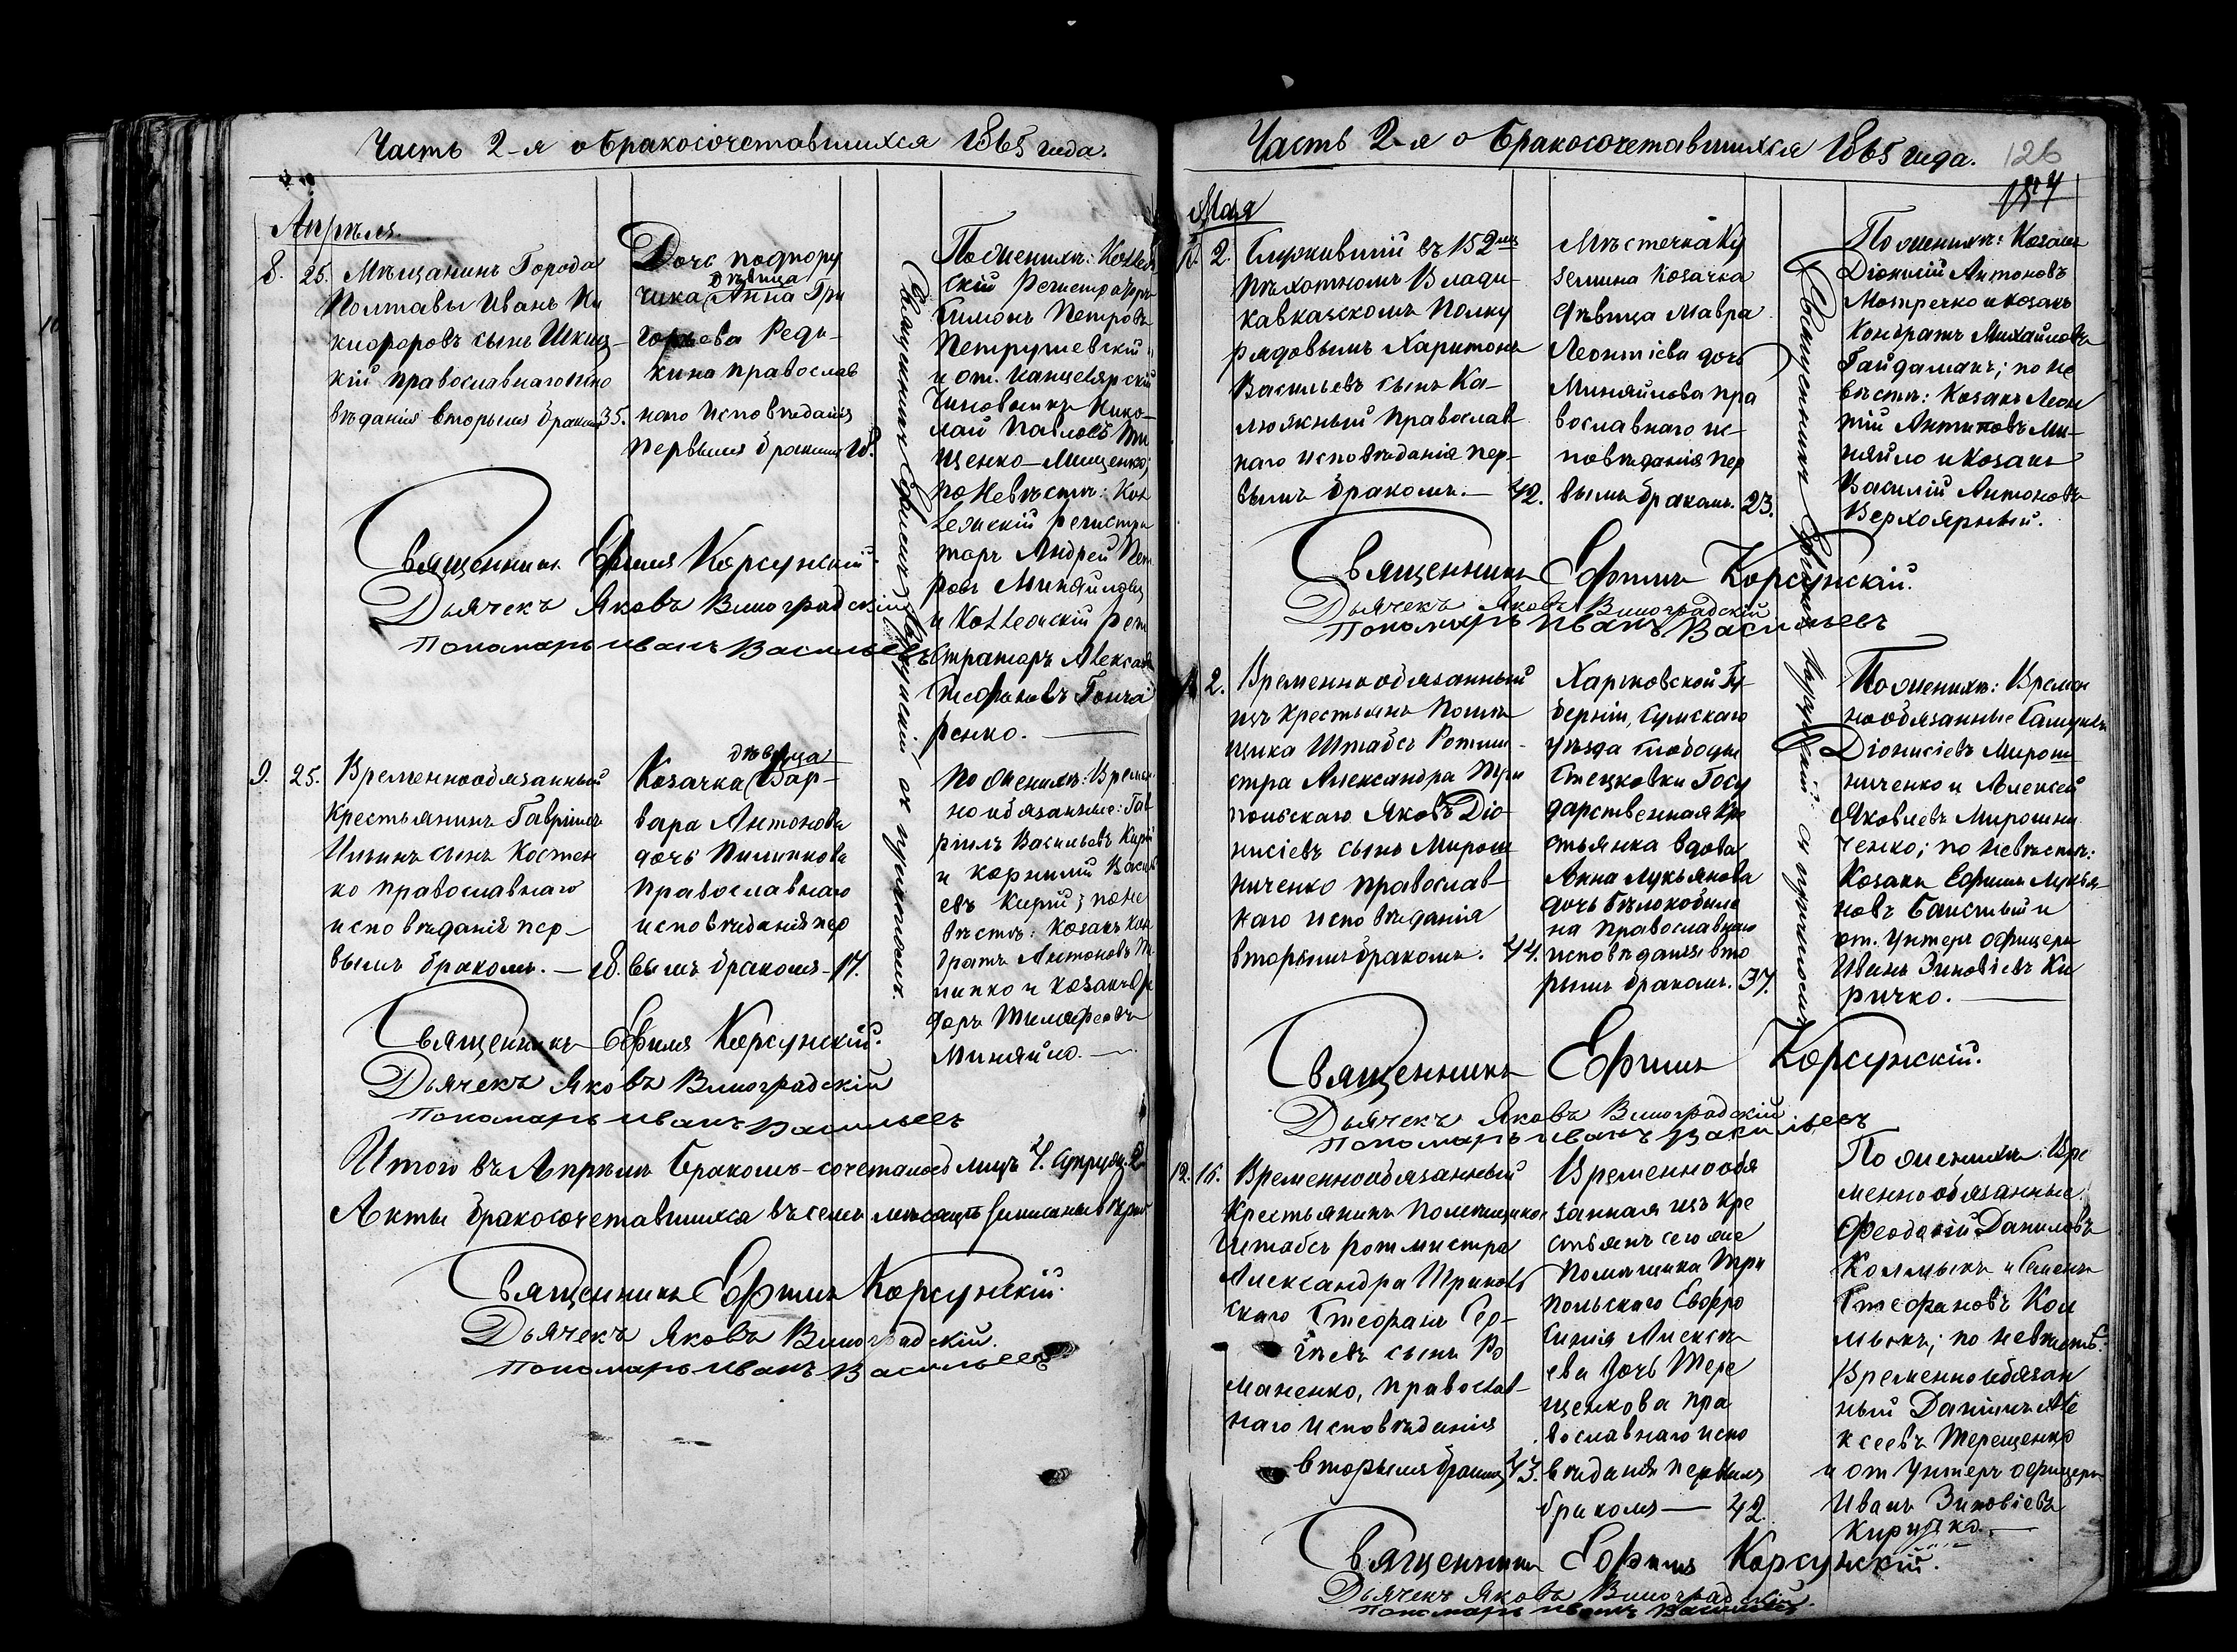 Часть 2-я о бракосочетавшихся 1865 года.
Апрѣля
8. 25. Мѣщанинъ Города
Полтавы Иванъ Ни
кифоровъ сынъ
кій православнаго испо
вѣданія вторымъ бракомъ 35.
Дочь подпору
дѣвица
чика Анна Гри
горьева Редь
кина православ
наго исповѣданія
первымъ бракомъ 18.
Священникъ Ефимъ Корсунскій съ причтомъ.
По женихѣ: Коллеж
скій Регистраторъ
Симонъ Петровъ
Петрушевскій
и от. канцелярскій
Чиновникъ Нико
лай Павловъ
щенко-Мищенко;
по невѣстѣ: Кол
лежскій регистра
торъ Андрей Пет
ровъ
и Коллежскій Реги
страторъ Алексан
Стефановъ Гонча
ренко.
Священникъ Ефимъ Корсунскій.
Дьячекъ Яковъ Виноградскій
Пономарь Иванъ Васильевъ
9. 25. Временнообязанный
Крестьянинъ Гавріилъ
Ильинъ сынъ Костен
ко православнаго
исповѣданія пер
вымъ бракомъ. — 18.
дѣвица
Козачка Вар
вара Антонова
дочь Пилипкова
православнаго
исповѣданія пер
вымъ бракомъ 17.
По женихѣ: Времен
но обязанные: Гав
ріилъ Васильевъ
и Корнилій Василь
евъ Кирій; по не
вѣстѣ: Козакъ Кон
дратъ Антоновъ
липко и козакъ
доръ Тимофеевъ
Миняйло. —
Священникъ Ефимъ Корсунскій.
Дьячекъ Яковъ Виноградскій
Пономарь Иванъ Васильевъ
Итого въ Апрѣлѣ бракомъ сочеталось лицъ 4. Супруж. 2
Акты бракосочетавшихся въ семъ мѣсяцѣ писаны вѣрно
Священникъ Ефимъ Корсунскій.
Дьячекъ Яковъ Виноградскій.
Пономарь Иванъ Васильевъ
Часть 2-я о бракосочетавшихся 1865 года.
126
Мая
2. Служившій въ 152мъ
Пѣхотномъ Влади
кавказскомъ Полку
рядовымъ Харитонъ
Васильевъ сынъ Ка
люжный Православ
наго исповѣданія пер
вымъ бракомъ. — 42.
Мѣстечка Ку
земина козачка
дѣвица Мавра
Леонтіева дочь
Миняйлова пра
вославнаго ис
повѣданія пер
вымъ бракомъ. 23.
Священникъ Ефимъ Корсунскій съ причтомъ
По женихѣ: Козакъ
Діонисій Антоновъ
Мотречко и козакъ
Кондратъ Михайловъ
Гайдамакъ; по не
вѣстѣ: Козакъ Леон
тій Антиповъ Ми
няйло и козакъ
Василій Антоновъ
Верхоярный.
Священникъ Ефимъ Корсунскій.
Дьячекъ Яковъ Виноградскій
Пономарь Иванъ Васильевъ
2. Временнообязанный
изъ крестьянъ Помѣ
щика Штабсъ Ротми
стра Александра Три
польскаго Яковъ Діо
нисіевъ сынъ Мирош
ниченко православ
наго исповѣданія
вторымъ бракомъ. 44.
Харьковской Гу
берніи, Сумскаго
уѣзда слободы
Стецковки Госу
дарственная Кре
стьянка вдова
Анна Лукьянова
дочь Бѣлокобыль
на православнаго
исповѣданія вто
рымъ бракомъ. 37.
По женихѣ: Времен
нообязанные Самуилъ
Діонисіевъ Мирош
ниченко и Алексей
Яковлевъ Мирошни
ченко; по невѣстѣ:
Козакъ Ефимъ Лукья
новъ и
от. Унтеръ офицеръ
Иванъ Зиновіевъ Ки
ричко. —
Священникъ Ефимъ Корсунскій.
Дьячекъ Яковъ Виноградскій
Пономарь Иванъ Васильевъ
12. 16. Временнообязанный
Крестьянинъ Помѣщика
Штабсъ ротмистра
Александра Триполь
скаго Стефанъ Сер
гѣевъ сынъ Ро
маненко, православ
наго исповѣданія
вторымъ бракомъ 43.
Временнообя
занная изъ кре
стьянъ сего же
Помѣщика Три
польскаго Евфро
синія Алексѣ
ева дочь Тере
щенкова пра
вославнаго испо
вѣданія первымъ
бракомъ — 42.
По женихѣ: Вре
меннообязанные:
Феодосій Даниловъ
Колмыкъ и Семенъ
Стефановъ Кол
мыкъ; по невѣстѣ:
Временнообязан
ный Даніилъ Але
ксеевъ Терещенко
и от Унтеръ офицеръ
Иванъ Зиновіевъ
Киричко. —
Священникъ Ефимъ Корсунскій.
Дьячекъ Яковъ Виноградскій.
Пономарь Иванъ Васильевъ